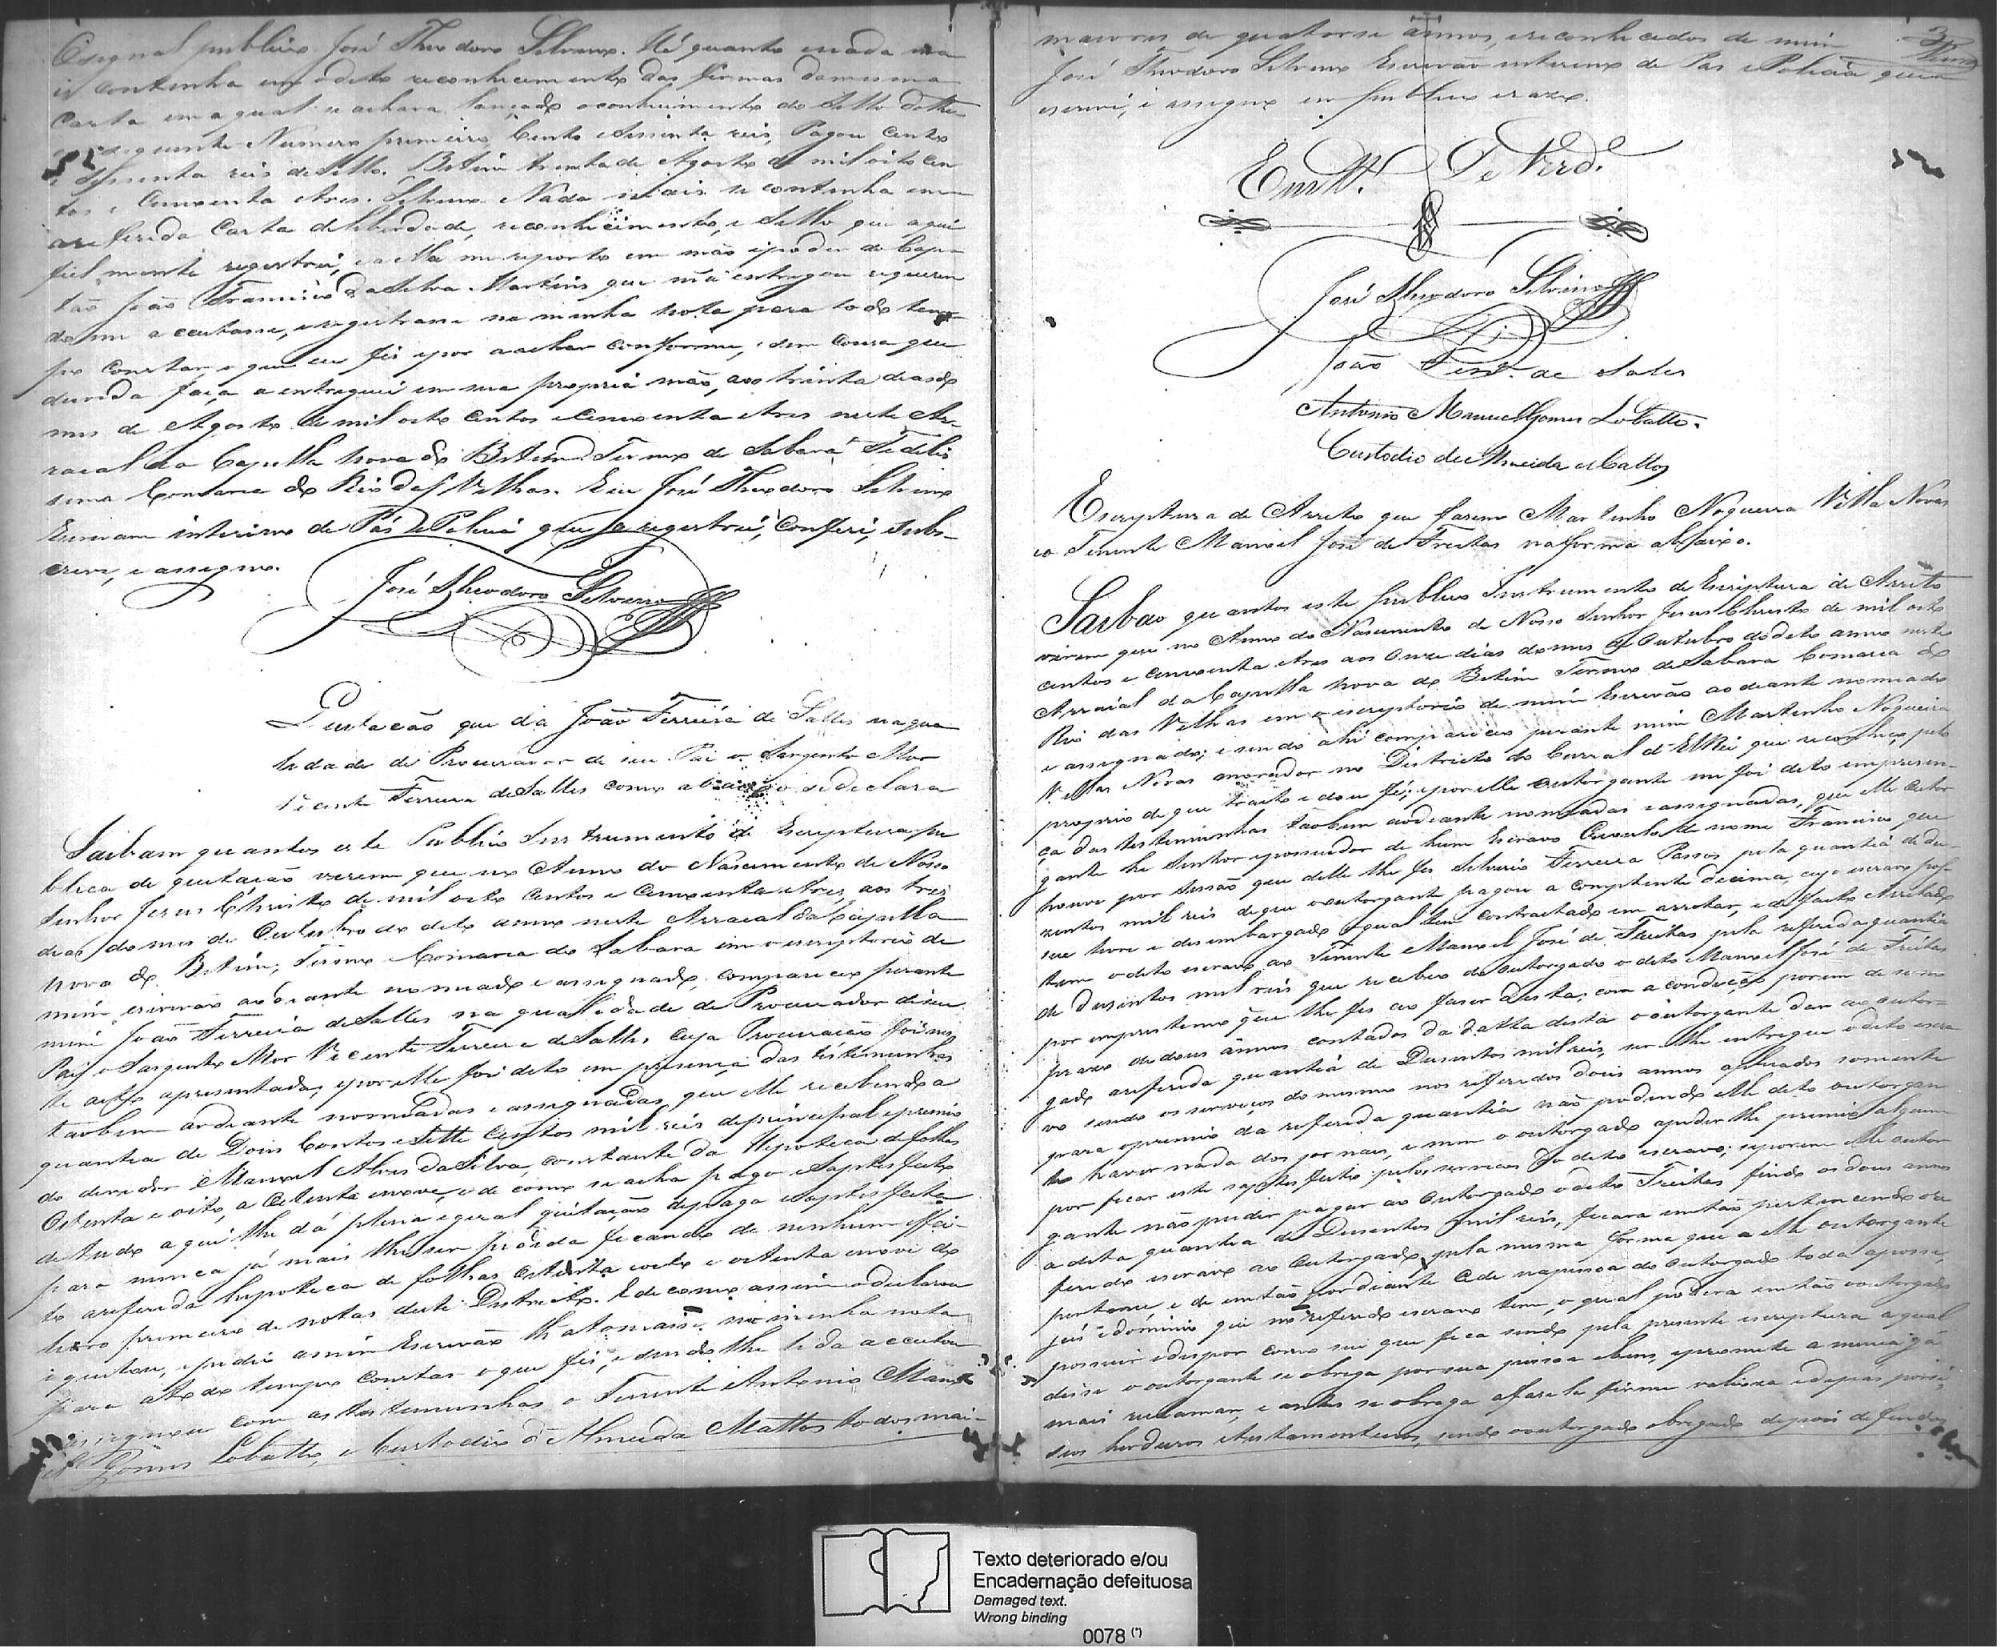 O signal publico José Theodoro Silverio. Hé quanto e nada ma
is continha em o dito reconhecimento das firmas da mesma
Carta em a qual se achava lançado o conhecimento do Sello
seguinte Numero primeiro Cento e sessenta reis, Pagou cento
e sessenta reis de sello. Betim trinta de Agosto de mil oito cen
tos e Cincoenta e tres. Silverio. Nada mais se continha em
a referida Carta de liberdade, reconhecimento, e Sello que aqui
fiel mente registrei, e a ella me reporto em mão e poder do Capi
tão João Francisco da Silva Martins que m'a entregou requeren
do-me a aceitasse, e registrasse na minha Nota para todo tempo
constar o que eu fis e por a achar conforme, e sem cousa que
duvida faça a entreguei em sua propria mão, aos trinta dias do
mes de Agosto de mil oito centos e Cincoenta e tres neste Ar
raial da Capella Nova do Betim Termo de Sabará Fidelis
sima Comarca do Rio das Velhas. Eu José Theodoro Silverio
Escrivam interino de Pás e Policia que a registrei, Conferi, subs
crevi, e assigno.
José Theodoro Silverio
Quitação que dá João Ferreira de Salles na qua
lidade de Procurador de seu Pai o Sargento Mor
Vicente Ferreira de Salles como abaixo se declara
Saibam quantos este Publico Instrumento de Escriptura pu
blica de quitação virem que no Anno do Nascimento de Nosso
Senhor Jesus Christo de mil oito centos e Cincoenta e tres, aos tres
dias do mes de Outubro do dito anno neste Arraial da Capella
nova do Betim, Termo e Comarca do Sabara em o escriptorio de
mim escrivão ao diante nomeado e assignado, compareceo perante
mim João Ferreira de Salles na qualidade de Procurador de seu
Pai o Sargento Mor Vicente Ferreira de Salles cuja Procuração foi nes
te acto apresentada, e por elle foi dito em presença das testemunhas
tãobem ao diante nomeadas e assignadas, que elle recebendo a
quantia de Dois Contos e Sette Centos mil reis de principal e premio
do devedor Manoel Alves da Silva, constante da Hypoteca de folhas
Oitenta e oito, a Oitenta e nove, e de como se acha pago e satisfeito
de tudo aqui lhe dá plena e geral quitação de paga e satisfeita
para nunca já mais lhe ser pedida ficando de nenhum effei
to a referida hypoteca de folhas oitenta e oito e oitenta e nove do
livro primeiro de notas deste Districto. E de como assim o declarou
e quitou, e pedio a mim Escrivão lh'a tomasse na minha nota
para a todo tempo constar o que fis, e sendo lhe lida aceitou
assignou com as testemunhas o Tenente Antonio Mano
el Gomes Lobatto, e Custodio d'Almeida Mattos todos mai
maiores de quatorse annos, e reconhecidos de mim
José Theodoro Silverio Escrivão interino de Pas e Policia que a
escrevi, e assigno em publico e raso.
Em Tt. De Verd.e
José Theodoro Silverio
João Ferr.a de Sales
Antonio Manuel Gomes Lobatto.
Custodio de Almeida e Mattos
Escriptura de Arreto que fasem Martinho Nogueira Villa Novas
e o Tenente Manoel José de Freitas na forma abaixo.
Saibão quantos este publico Instrumento de Escriptura de Arreto
virem que no Anno do Nascimento de Nosso Senhor Jesus Christo de mil oito
centos e cincoenta e tres aos Onze dias do mes de Outubro do dito anno neste
Arraial da Capella nova do Betim Termo de Sabara Comarca do
Rio das Velhas em o escriptorio de mim Escrivão ao diante nomeado
e assignado; e sendo ahi compareceo perante mim Martinho Nogueira
Villas Novas morador no Districto do Curral d'ElRei que reconheço pelo
proprio de que tracto e dou fé; e por elle outorgante me foi dito em presen
ça das testemunhas tãobem ao diante nomeadas e assignadas, que elle outor
gante he Senhor e possuidor de hum Escravo Crioulo de nome Francisco que
houve por sessão que delle lhe fes Silverio Ferreira Passos pela quantia de du
zentos mil reis de que o outorgante pagou a competente decima, cujo escravo pos
sue livre e desembargado o qual tem contractado em arrotar, e de facto Arretado
tem o dito escravo ao Tenente Manoel José de Freitas pela referida quantia
de Dusentos mil reis que recebeo do outorgado o dito Manoel José de Freitas
por emprestimo que lhe fes ao faser desta, com a condicção porem de se no
praso de dous annos contados da datta desta o outorgante dar ao outor
gado a referida quantia de Dusentos mil reis, ser lhe entregue o dito escra
vo sendo os serviços do mesmo nos referidos dous annos aplicados somente
para o premio da referida quantia não podendo elle dito outorgan
te haver nada dos jornais, e nem o outorgado pedir lhe premio algum
por ficar este satisfeito pelos servicos do dito escravo; se porem elle outor
gante não puder pagar ao outorgado o dito Freitas findo os dous annos
a dita quantia de Dusentos mil reis, ficara então pertencendo o re
ferido escravo ao outorgado pela mesma forma que a elle outorgante
pertence, e de então por diante cede na pessoa do outorgado toda a posse,
jus e dominio que no referido escravo tem, o qual podera então o outorgado
possuir e dispor como seu que fica sendo pela presente escriptura a qual
disse o outorgante se obriga por sua pessoa e bens, e promette a nunca já
mais reclamar, e antes se obriga a fase la firme valiosa e depois por si,
seus herdeiros e testamenteiros, sendo o outorgado obrigado depois de findos
Texto deteriorado e/ou
Encadernação defeituosa
Damaged text.
Wrong binding
0078 (*)